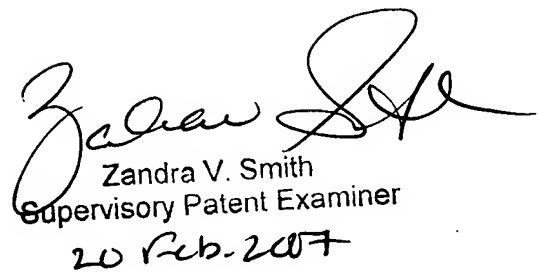 Zandra V. Smith
Supervisory Patent Examiner
20 Feb. 2007